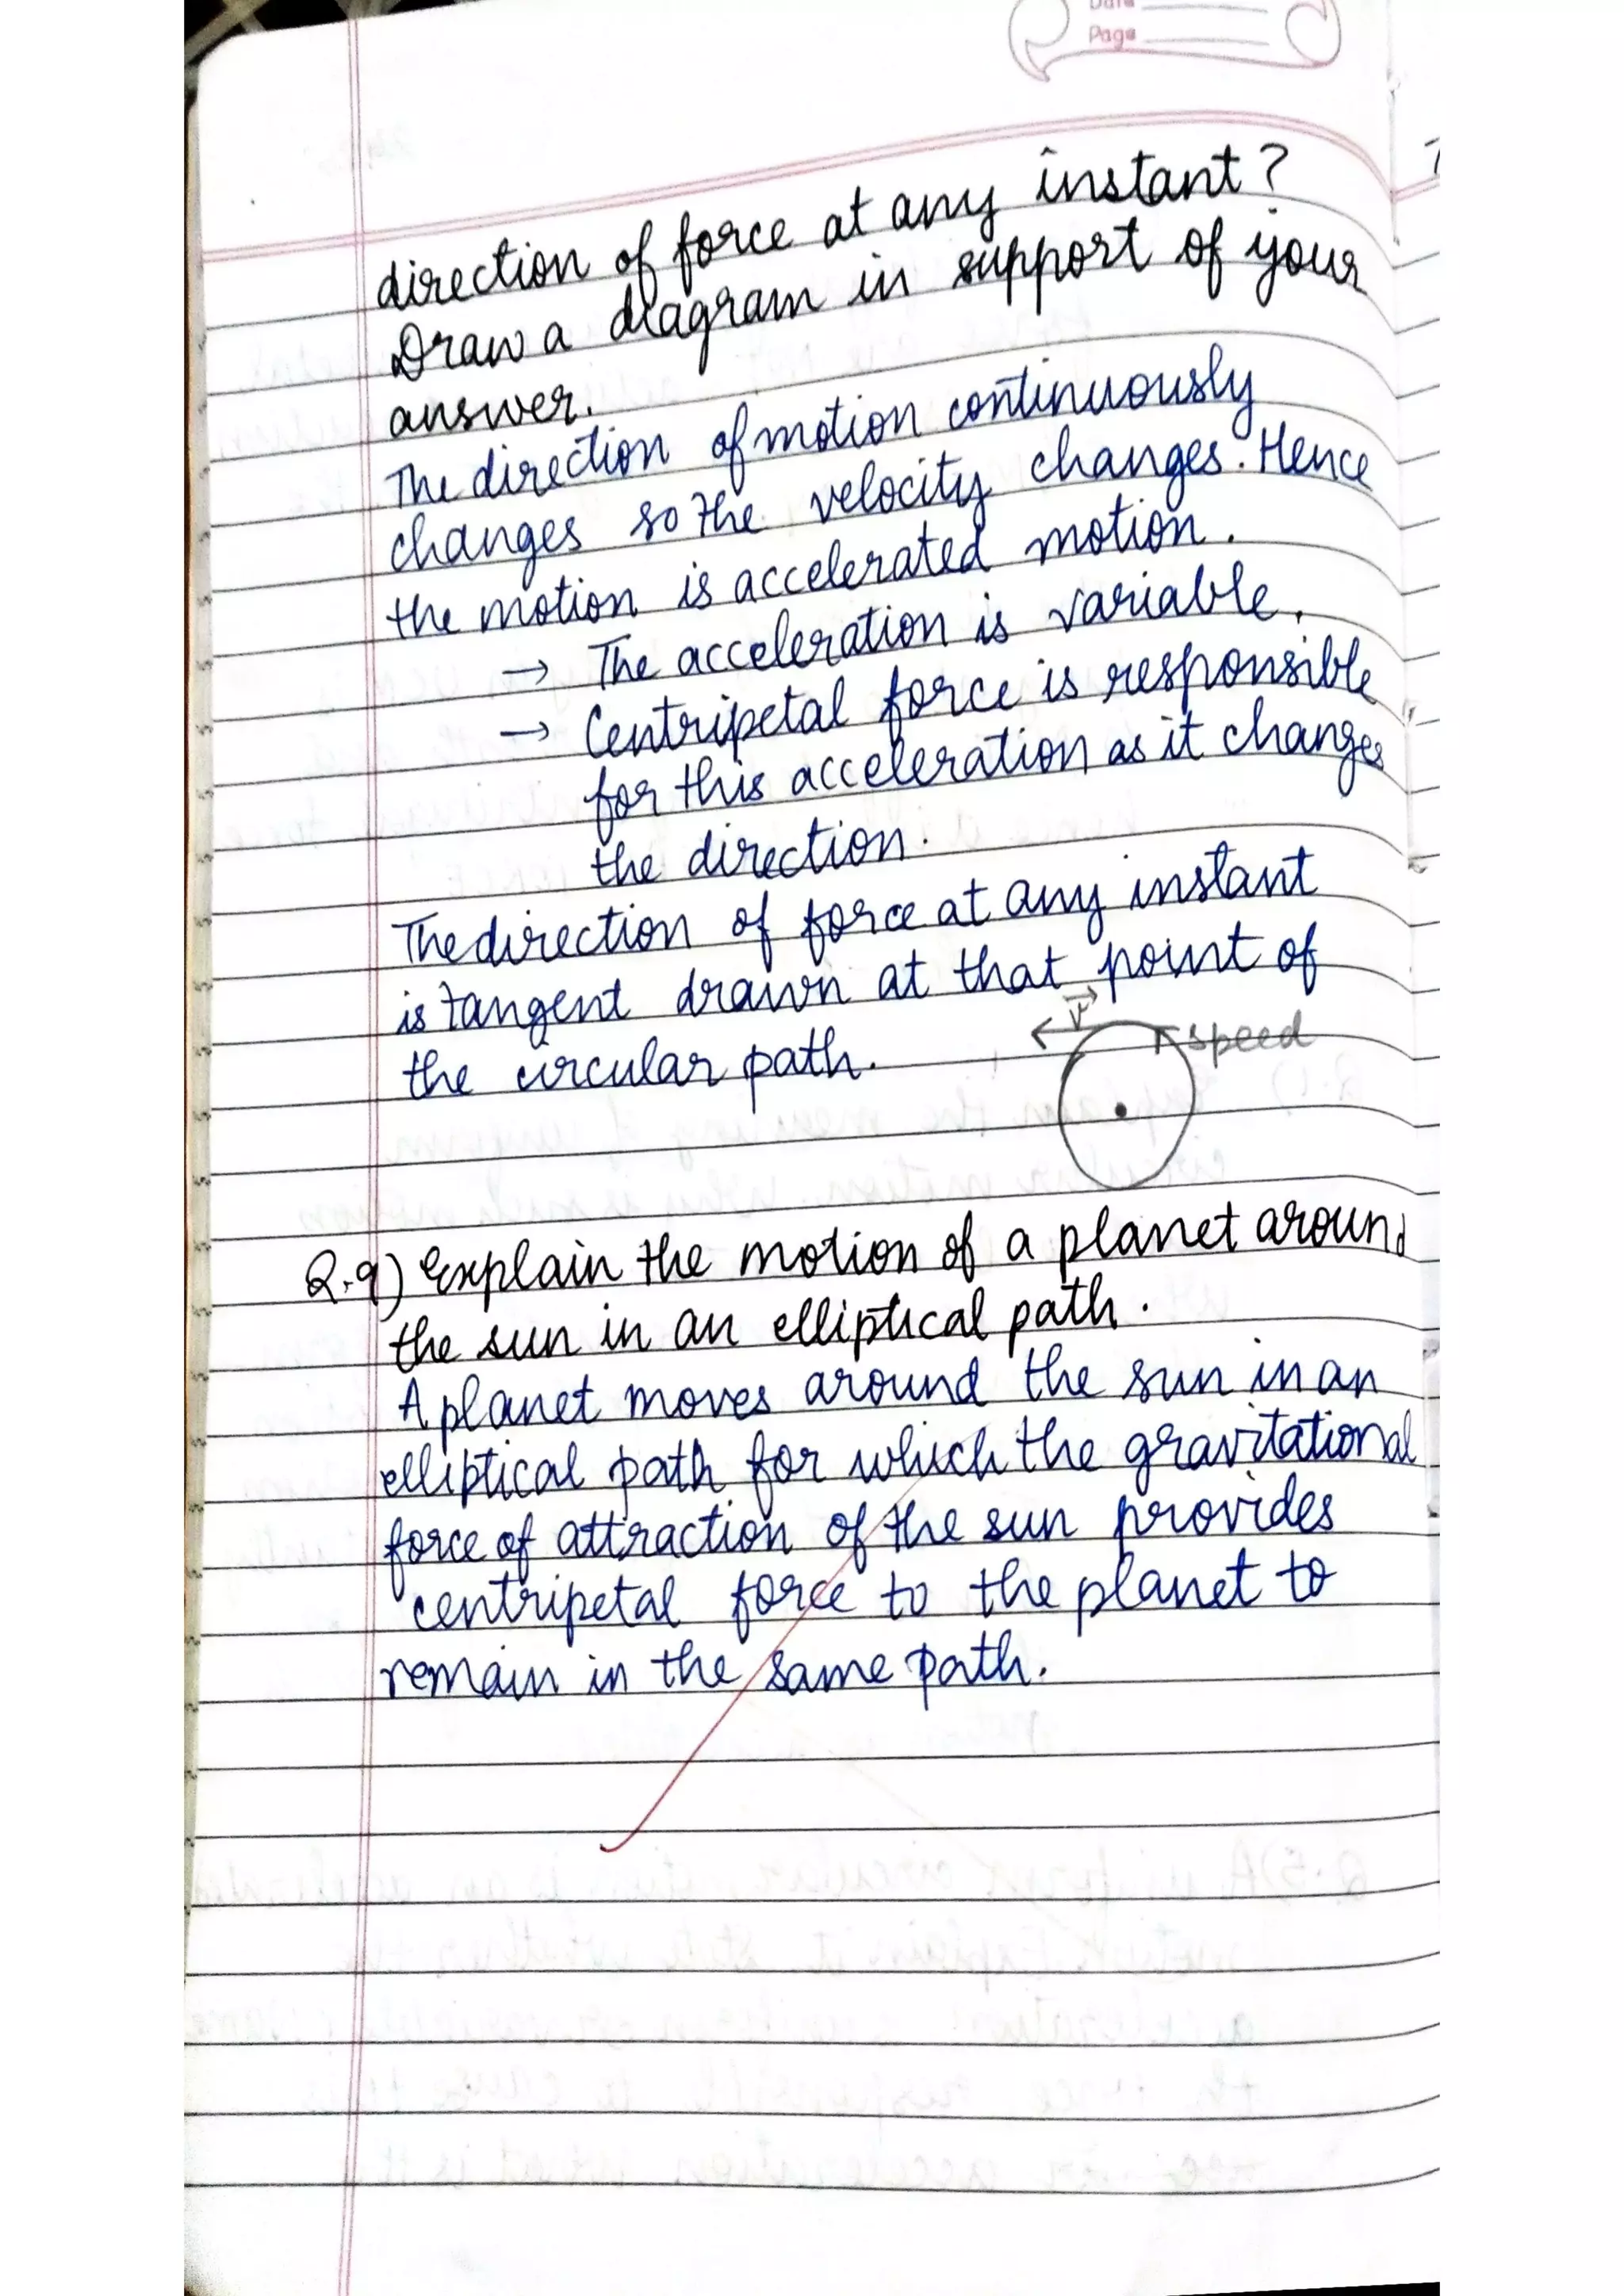 Date
Page
direction of force at any instant?
Draw a diagram in support of your
answer.
The direction of motion continuously
changes so the velocity changes. Hence
the motion is accelerated motion.
→ The acceleration is variable.
→ Centripetal force is responsible
for this acceleration as it changes
the direction.
The direction of force at any instant
is tangent drawn at that point of
the circular path.
v speed
Q.9) Explain the motion of a planet around
the sun in an elliptical path.
A planet moves around the sun in an
elliptical path for which the gravitational
force of attraction of the sun provides
centripetal force to the planet to
remain in the same path.